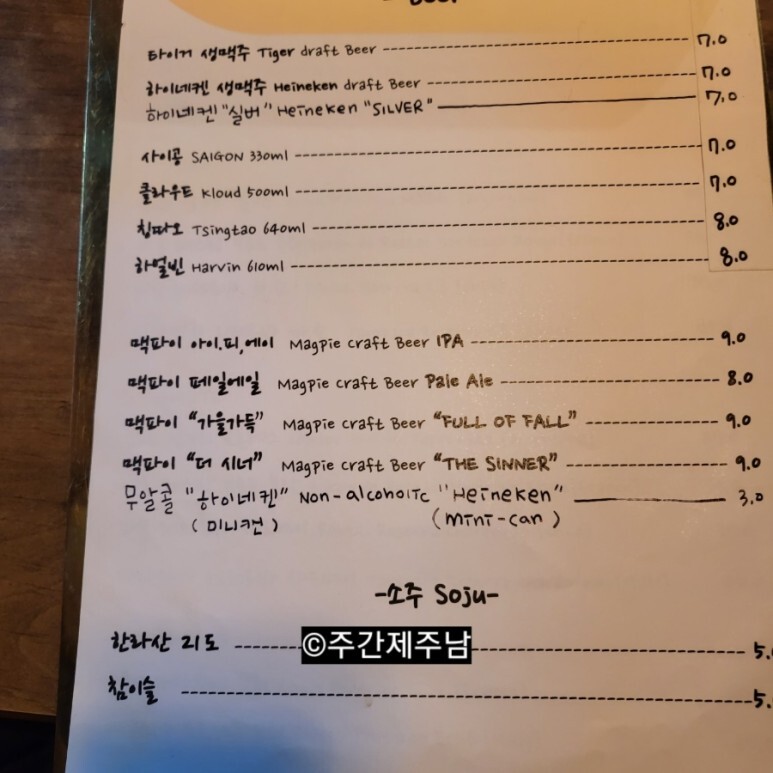 - Beer
타이거 생맥주 Tiger draft Beer 7.0
하이네켄 생맥주 Heineken draft Beer 7.0
하이네켄 "실버" Heineken "SILVER" 7.0
사이공 SAIGON 330ml 7.0
클라우드 Kloud 500ml 7.0
칭따오 Tsingtao 640ml 8.0
하얼빈 Harvin 610ml 8.0
맥파이 아이.피.에이 Magpie craft Beer IPA 9.0
맥파이 페일에일 Magpie craft Beer Pale Ale 8.0
맥파이 "가을가득" Magpie craft Beer "FULL OF FALL" 9.0
맥파이 "더 시너" Magpie craft Beer "THE SINNER" 9.0
무알콜 "하이네켄" Non-alcoholic "Heineken" 3.0
(미니캔) (mini-can)
-소주 Soju-
한라산 21도 5.
©주간제주남
참이슬 5.